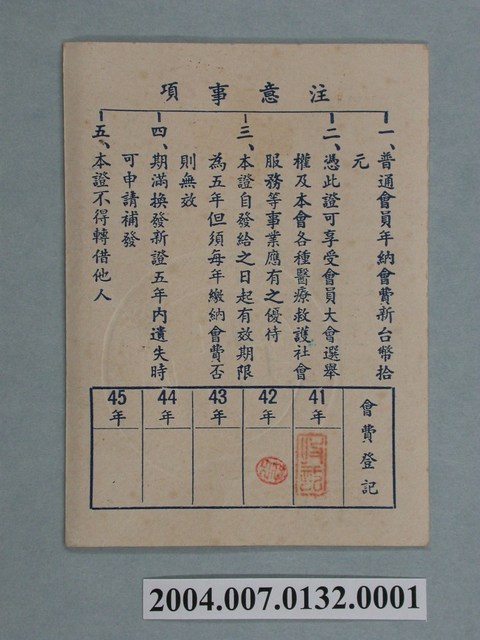 注意事項
一、普通會員年納會費新台幣拾
元
二、憑此證可享受會員大會選舉
權及本會各種醫療救護社會
服務等事業應有之優待
三、本證自發給之日起有效期限
為五年但須每年繳納會費否
則無效
四、期滿換發新證五年內遺失時
可申請補發
五、本證不得轉借他人
會費登記
41年
42年
43年
44年
45年
2004.007.0132.0001